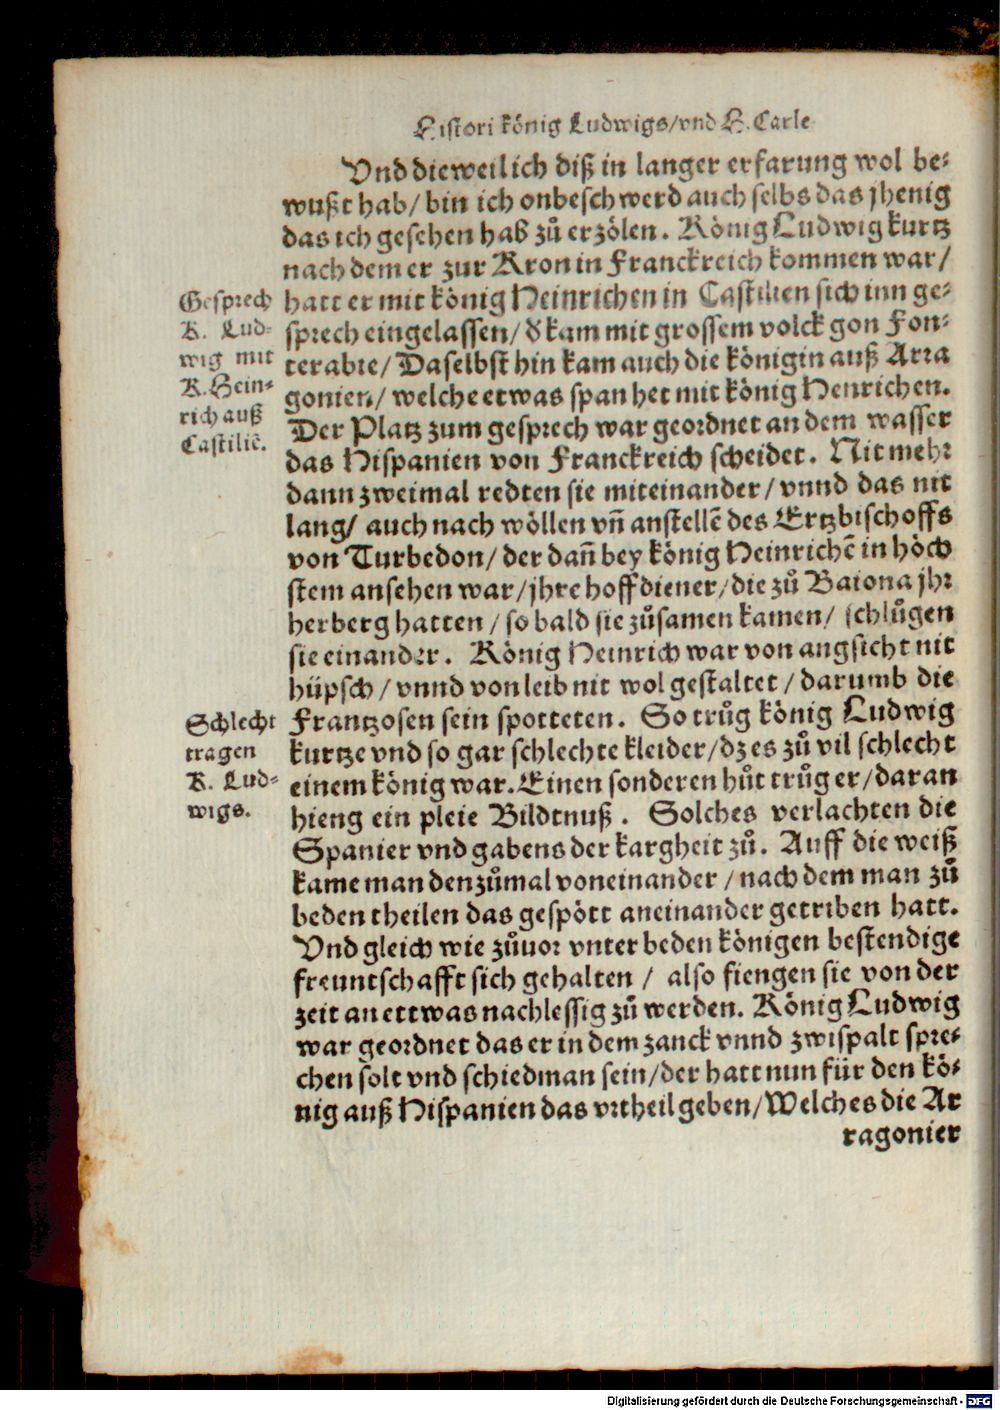 Histori könig Ludwigs/vnd H. Carle
Vnd dieweil ich diß in langer erfarung wol be-
wußt hab/ bin ich onbeschwerd auch selbs das jhenig
das ich gesehen hab zů erzölen. König Ludwig kurtz
nach dem er zur Kron in Franckreich kommen war/
hatt er mit könig Heinrichen in Castilien sich inn ge-
sprech eingelassen/ d kam mit grossem volck gon Fon-
terabie/ Daselbst hin kam auch die königin auß Arra
gonien/ welche etwas span het mit könig Henrichen.
Der Platz zum gesprech war geordnet an dem wasser
das Hispanien von Franckreich scheidet. Nit mehr
dann zweimal redten sie miteinander/ vnnd das nit
lang/ auch nach wöllen vñ anstellē des Ertzbischoffs
von Turbedon/ der dañ bey könig Heinrichē in höch
stem ansehen war/jhre hoffdiener/die zů Baiona jhr
herberg hatten / so bald sie zůsamen kamen/ schlůgen
sie einander. König Heinrich war von angsicht nit
hüpsch/ vnnd von leib nit wol gestaltet / darumb die
Frantzosen sein spotteten. So trůg könig Ludwig
kurtze vnd so gar schlechte kleider/dz es zů vil schlecht
einem könig war. Einen sonderen hůt trůg er/daran
hieng ein pleie Bildtnuß. Solches verlachten die
Spanier vnd gabens der kargheit zů. Auff die weiß
kame man denzůmal voneinander / nach dem man zů
beden theilen das gespött aneinander getriben hatt.
Vnd gleich wie zůuor vnter beden königen bestendige
freuntschafft sich gehalten / also fiengen sie von der
zeit an ettwas nachlessig zů werden. König Ludwig
war geordnet das er in dem zanck vnnd zwispalt spre-
chen solt vnd schiedman sein/der hatt nun für den kö-
nig auß Hispanien das vrtheil geben/Welches die Ar
ragonier
Gesprech
K. Lud-
wig mit
K. Hein-
rich auß
Castiliē.
Schlecht
tragen
K. Lud-
wigs.
Digitalisierung gefördert durch die Deutsche Forschungsgemeinschaft - DFG